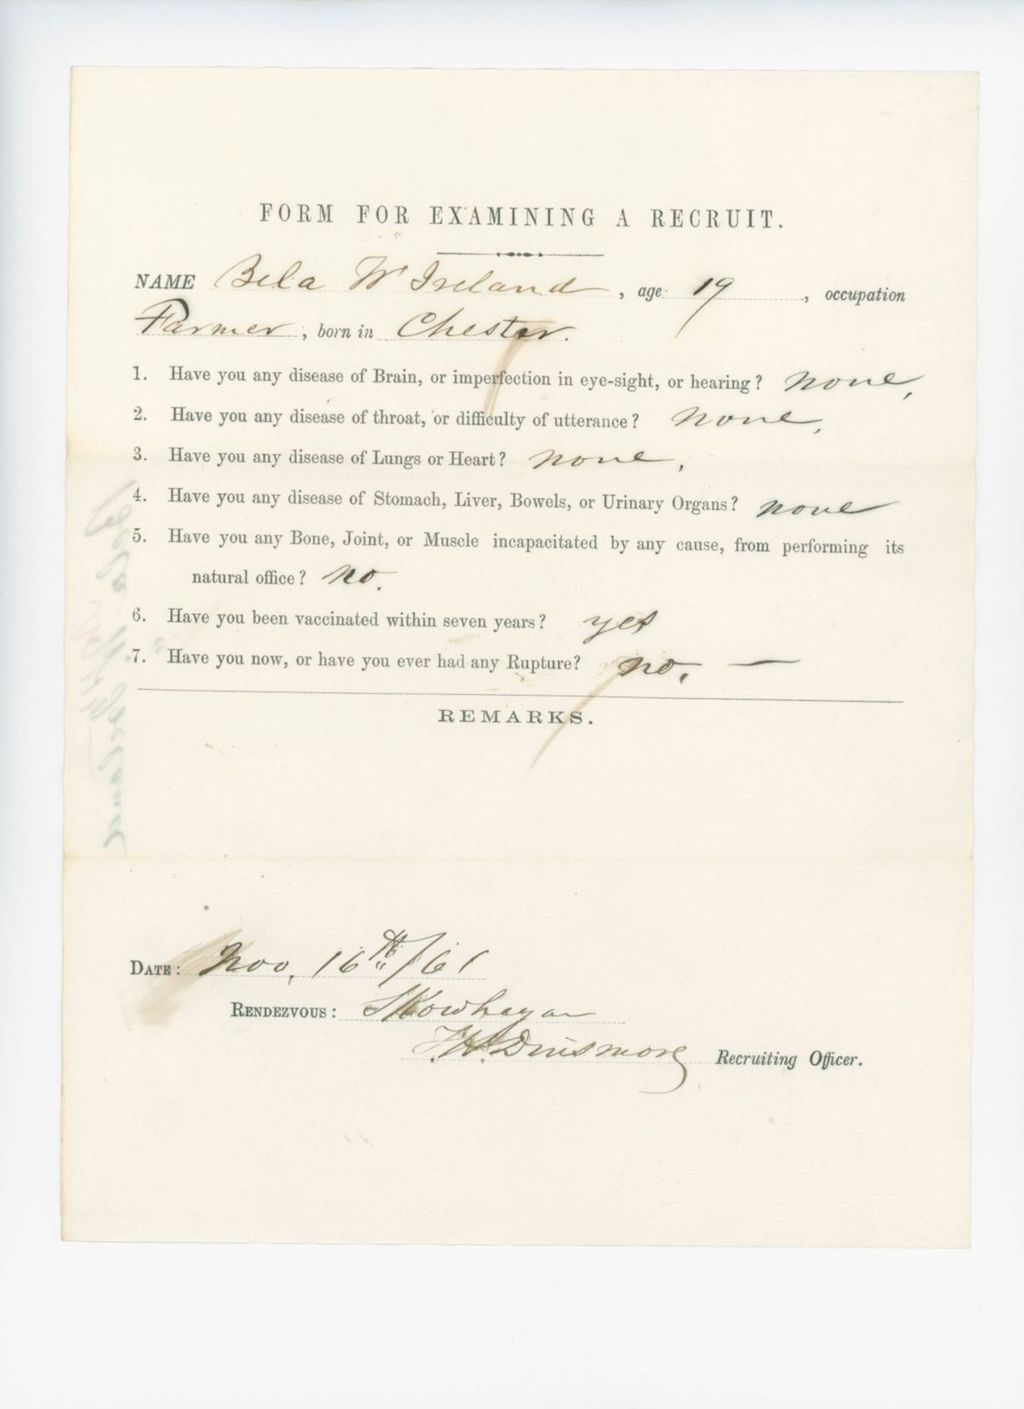 FORM FOR EXAMINING A RECRUIT.
NAME Bela W Ireland, age 19, occupation
Farmer, born in Chester.
1. Have you any disease of Brain, or imperfection in eye-sight, or hearing? none,
2. Have you any disease of throat, or difficulty of utterance? none,
3. Have you any disease of Lungs or Heart? none,
4. Have you any disease of Stomach, Liver, Bowels, or Urinary Organs? none
5. Have you any Bone, Joint, or Muscle incapacitated by any cause, from performing its
natural office? no.
6. Have you been vaccinated within seven years? yes
7. Have you now, or have you ever had any Rupture? no. —
REMARKS.
DATE: Nov, 16th/61
RENDEZVOUS: Skowhegan
F.H. Dinsmore Recruiting Officer.